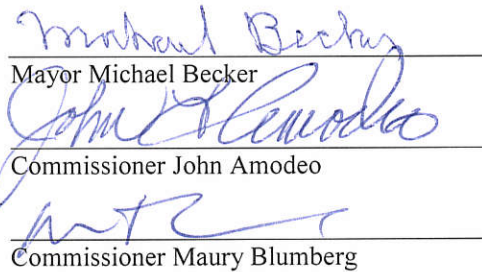 Michael Becker
Mayor Michael Becker
John Amodeo
Commissioner John Amodeo
Commissioner Maury Blumberg